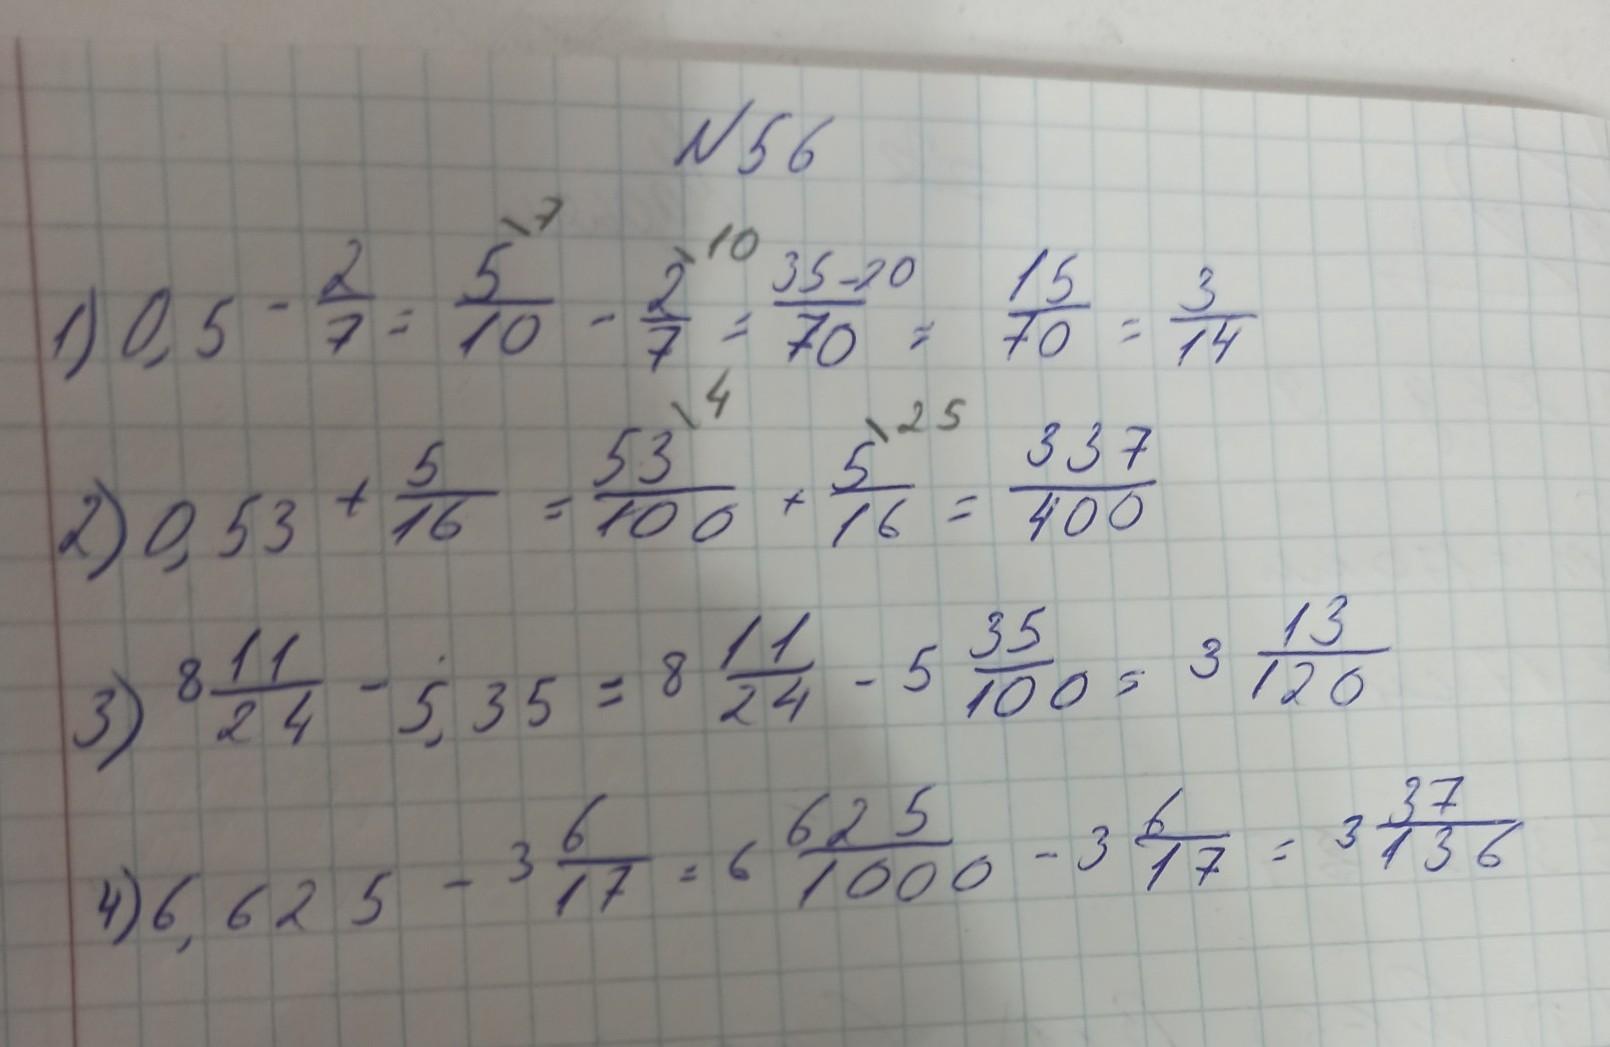 N56
1) 0,5 - 2/7 = 5\7/10 - 2\10/7 = 35-20/70 = 15/70 = 3/14
2) 0,53 + 5/16 = 53\4/100 + 5\25/16 = 337/400
3) 8 11/24 - 5,35 = 8 11/24 - 5 35/100 = 3 13/120
4) 6,625 - 3 6/17 = 6 625/1000 - 3 6/17 = 3 37/136